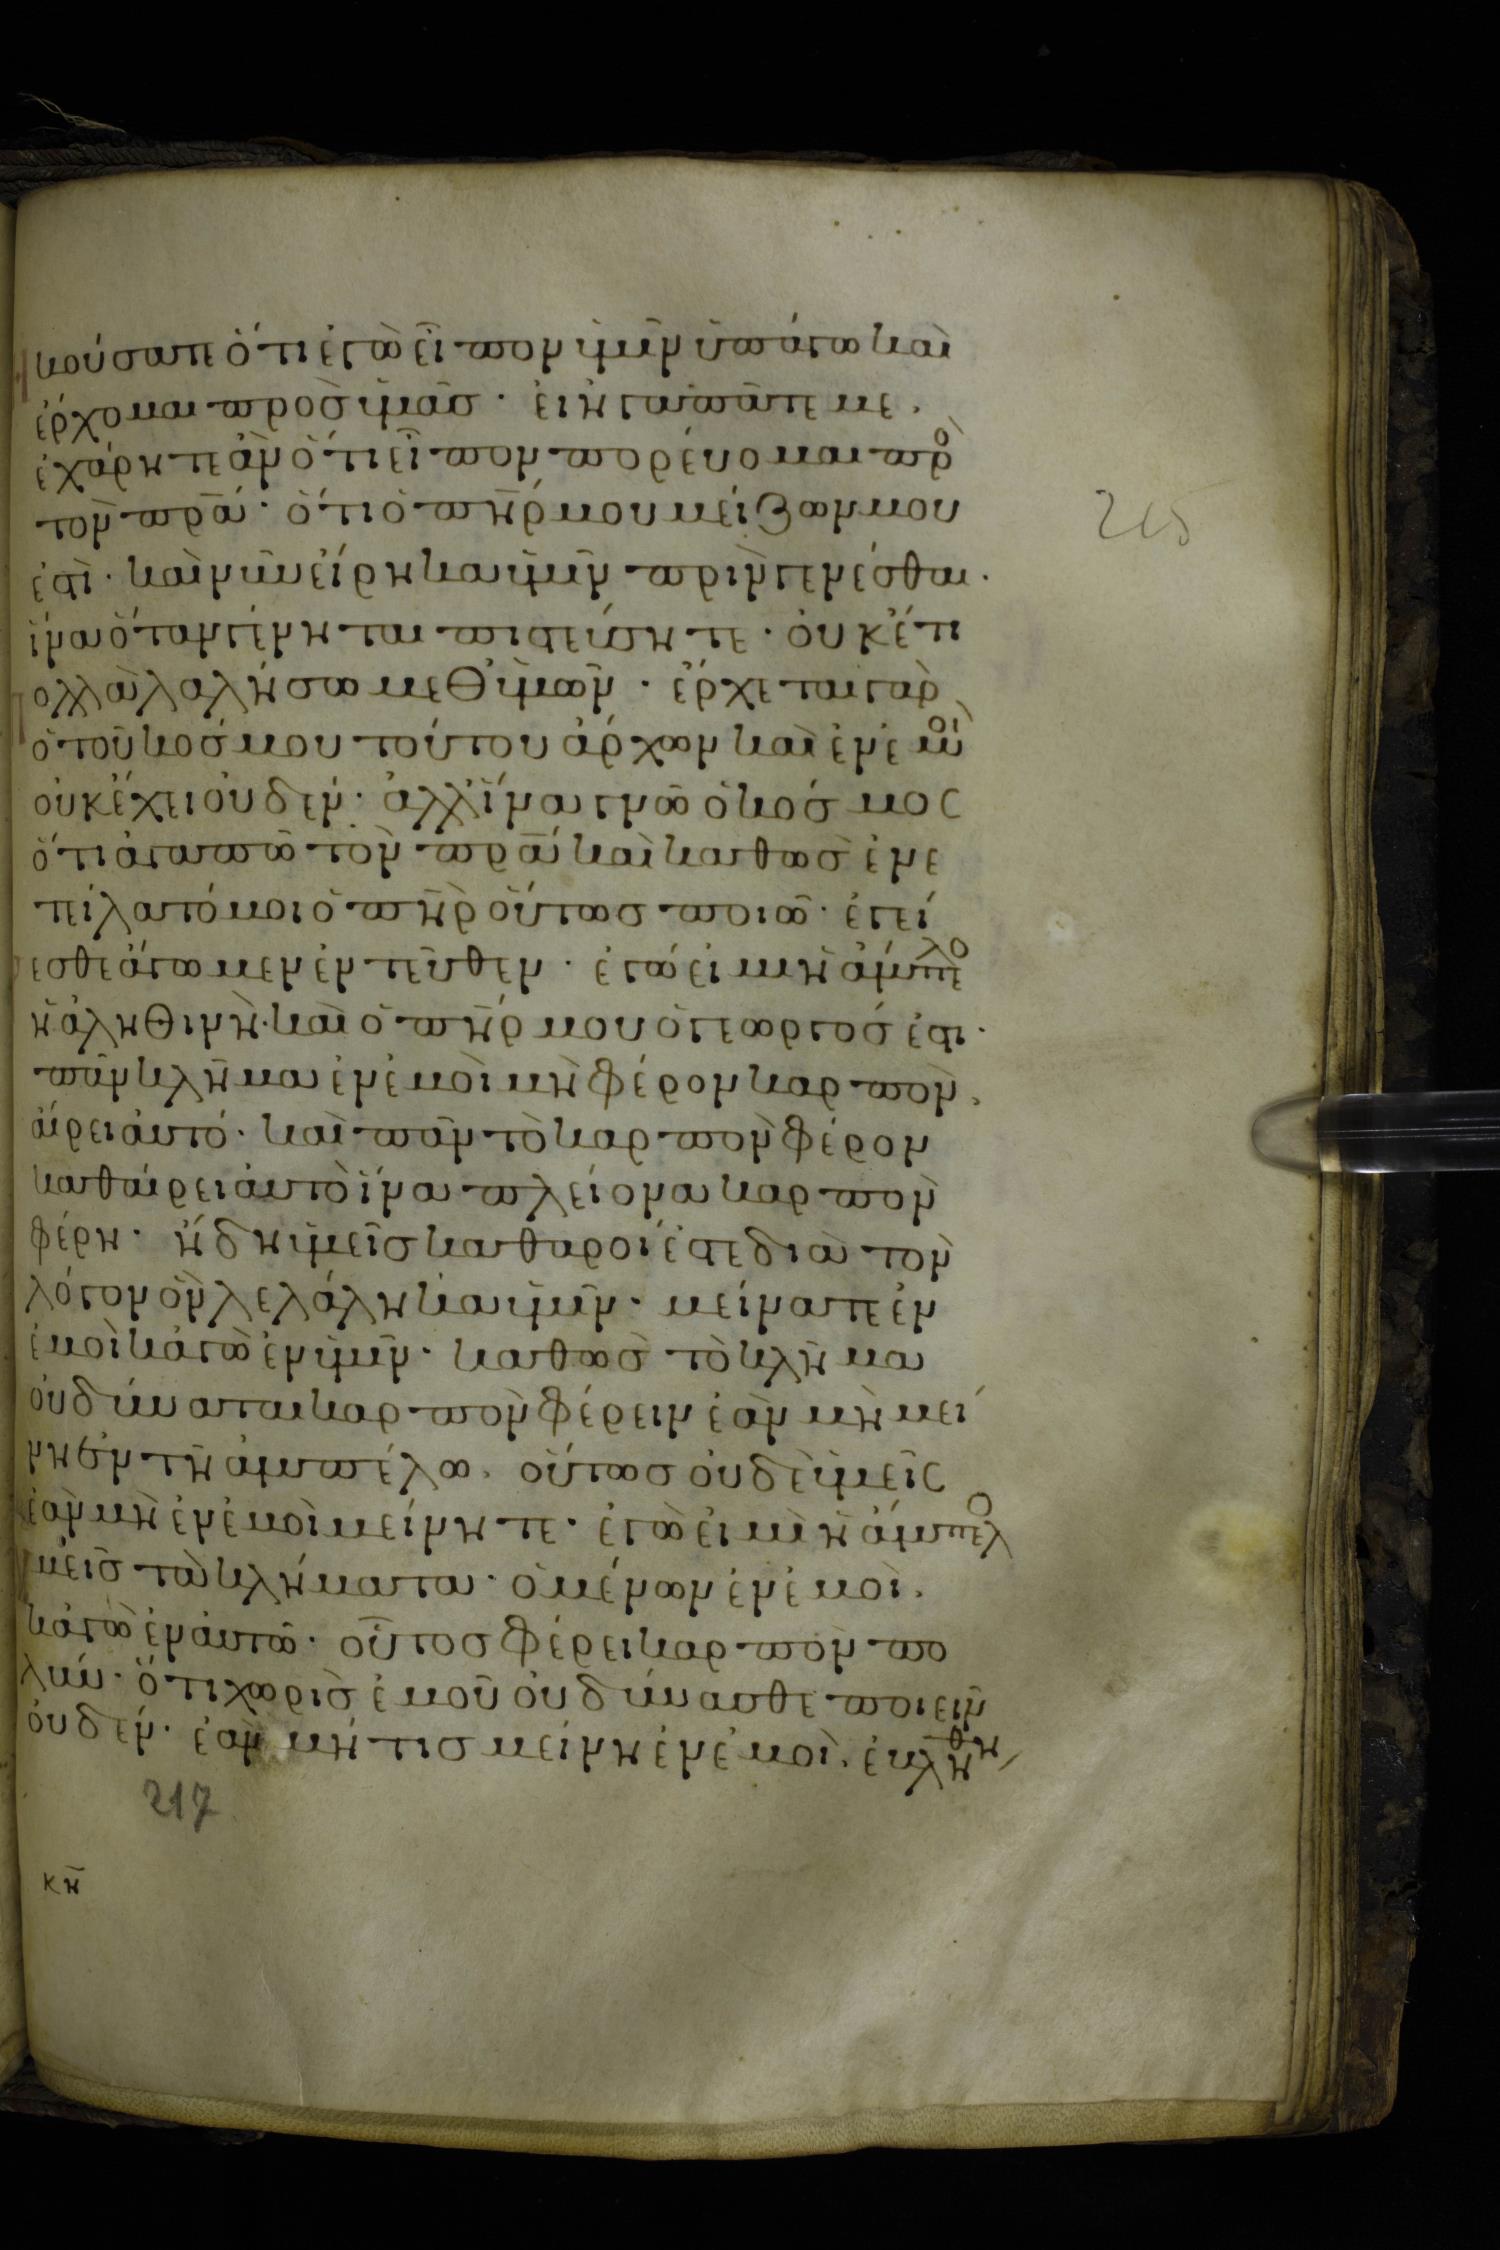 κούσατε ὅτι ἐγὼ εἶπον ὑμῖν ὑπάγω καὶ
ἔρχομαι πρὸς ὑμᾶς. εἰ ἠγαπᾶτέ με.
ἐχάρητε ἂν ὅτι εἶπον πορεύομαι πρὸ
τὸν πρ̅α. ὅτι ὁ πη̅ρ μου μείζων μου
ἐστὶ. καὶ νῦν εἴρηκα ὑμῖν πρὶν γενέσθαι.
ἵνα ὅταν γένηται πιστεύσητε. οὐκέτι
πολλὰ λαλήσω μεθ ὑμῶν. ἔρχεται γὰρ
ὁ τοῦ κόσμου τούτου ἄρχων καὶ ἐν ἐμοὶ
οὐκ ἔχει οὐδέν. ἀλλ ἵνα γνῶ ὁ κόσμος
ὅτι ἀγαπῶ τὸν πρ̅α καὶ καθὼς ἐνε
τείλατό μοι ὁ πη̅ρ οὕτως ποιῶ. ἐγεί
ρεσθε ἄγωμεν ἐντεῦθεν. ἐγώ εἰμι ἡ ἄμπελο
ἡ ἀληθινὴ. καὶ ὁ πη̅ρ μου ὁ γεωργός ἐστι.
πᾶν κλῆμα ἐν ἐμοὶ μὴ φέρον καρπὸν,
αἴρει αὐτό. καὶ πᾶν τὸ καρπὸν φέρον
καθαίρει αὐτὸ ἵνα πλείονα καρπὸν
φέρη. ἤδη ὑμεῖς καθαροί ἐστε διὰ τὸν
λόγον ὃν λελάληκα ὑμῖν. μείνατε ἐν
ἐμοὶ κἀγὼ ἐν ὑμῖν. καθὼς τὸ κλῆμα
οὐ δύναται καρπὸν φέρειν ἐὰν μὴ μεί
νη ἐν τῆ ἀμπέλω. οὕτως οὐδὲ ὑμεῖς
ἐὰν μὴ ἐν ἐμοὶ μείνητε. ἐγὼ εἰμὶ ἡ ἄμπελο
ὑμεῖς τὰ κλήματα. ὁ μένων ἐν ἐμοὶ.
κἀγὼ ἐν αὐτῶ. οὗτος φέρει καρπὸν πο
λύν. ὅτι χωρὶς ἐμοῦ οὐ δύνασθε ποιεῖν
οὐδέν. ἐὰν μή τις μείνη ἐν ἐμοὶ. ἐβλήθη
215
217
κη̅